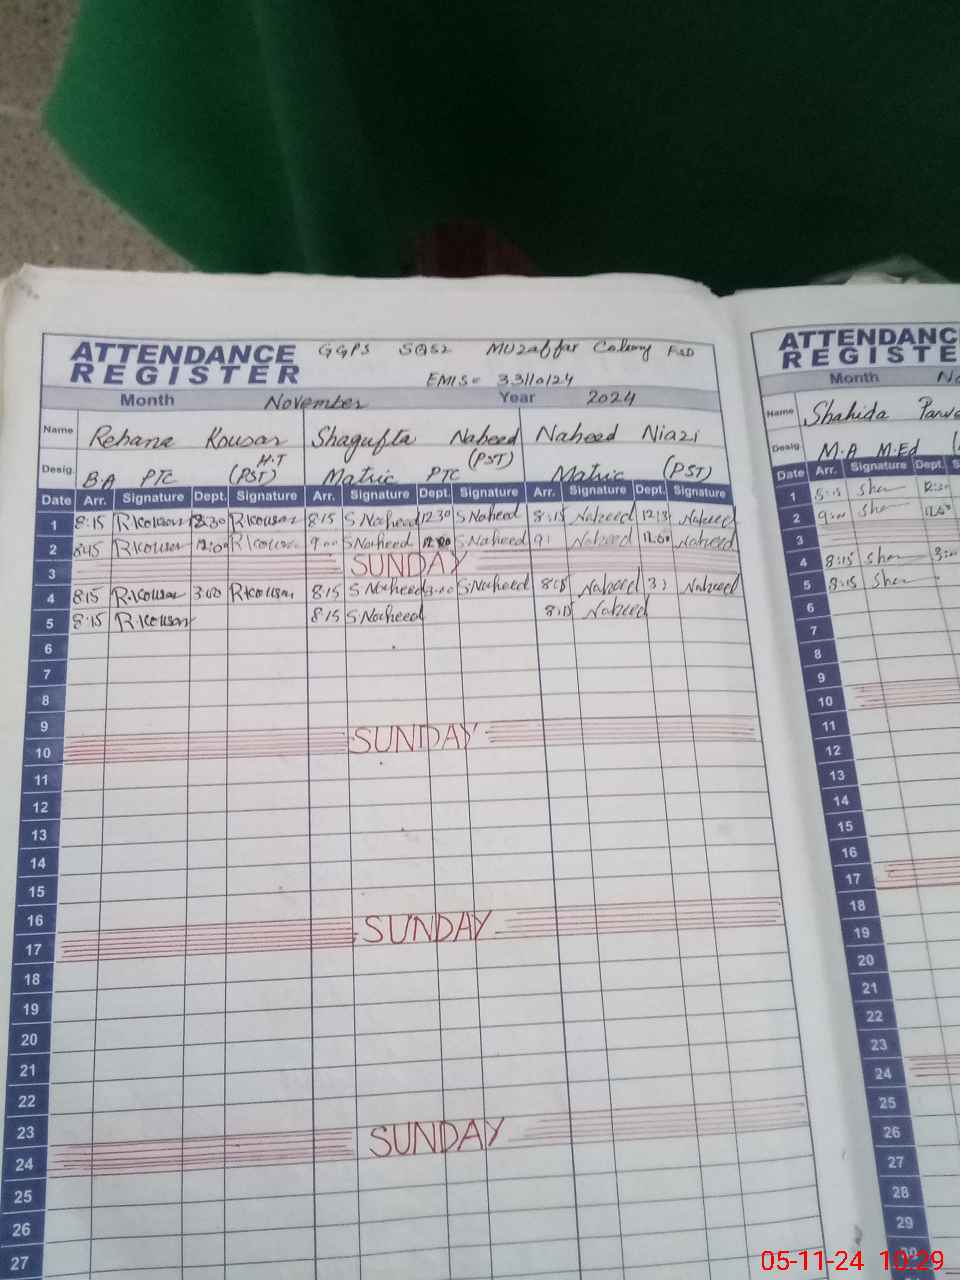 ATTENDANCE REGISTER GGPS SQ52 Muzaffar Colony FSD
EMIS= 33110124
Month November Year 2024
Name Rehana Kousar Shagufta Naheed Naheed Niazi
Desig. BA PTC H.T (PST) Matric PTC (PST) Matric (PST)
Date Arr. Signature Dept. Signature Arr. Signature Dept. Signature Arr. Signature Dept. Signature
1 8:15 R.kousar 12:30 R.kousar 8:15 S.Naheed 12:30 S.Naheed 8:15 Naheed Naheed
2 R.kousar 12:00 R.kousar 9:00 S.Naheed 12:00 S.Naheed Naheed 12.00 Naheed
3 SUNDAY
4 8:15 R.kousar 3:00 R.kousar 8:15 S.Naheed 3:00 S.Naheed 8:15 Naheed Naheed
5 8:15 R.kousar 8:15 S.Naheed 8:15 Naheed
6
7
8
9
10 SUNDAY
11
12
13
14
15
16
17 SUNDAY
18
19
20
21
22
23
24 SUNDAY
25
26
27
ATTENDANC
REGISTE
Month No
Name Shahida Parv
Desig. M.A M.Ed
Date Arr. Signature Dept. S
1 8:15 Sha 12:30
2 9:00 Sha 12:00
3
4 8:15 Sha 3:00
5 8:15 Sha
6
7
8
9
10
11
12
13
14
15
16
17
18
19
20
21
22
23
24
25
26
27
28
29
05-11-24 10:29